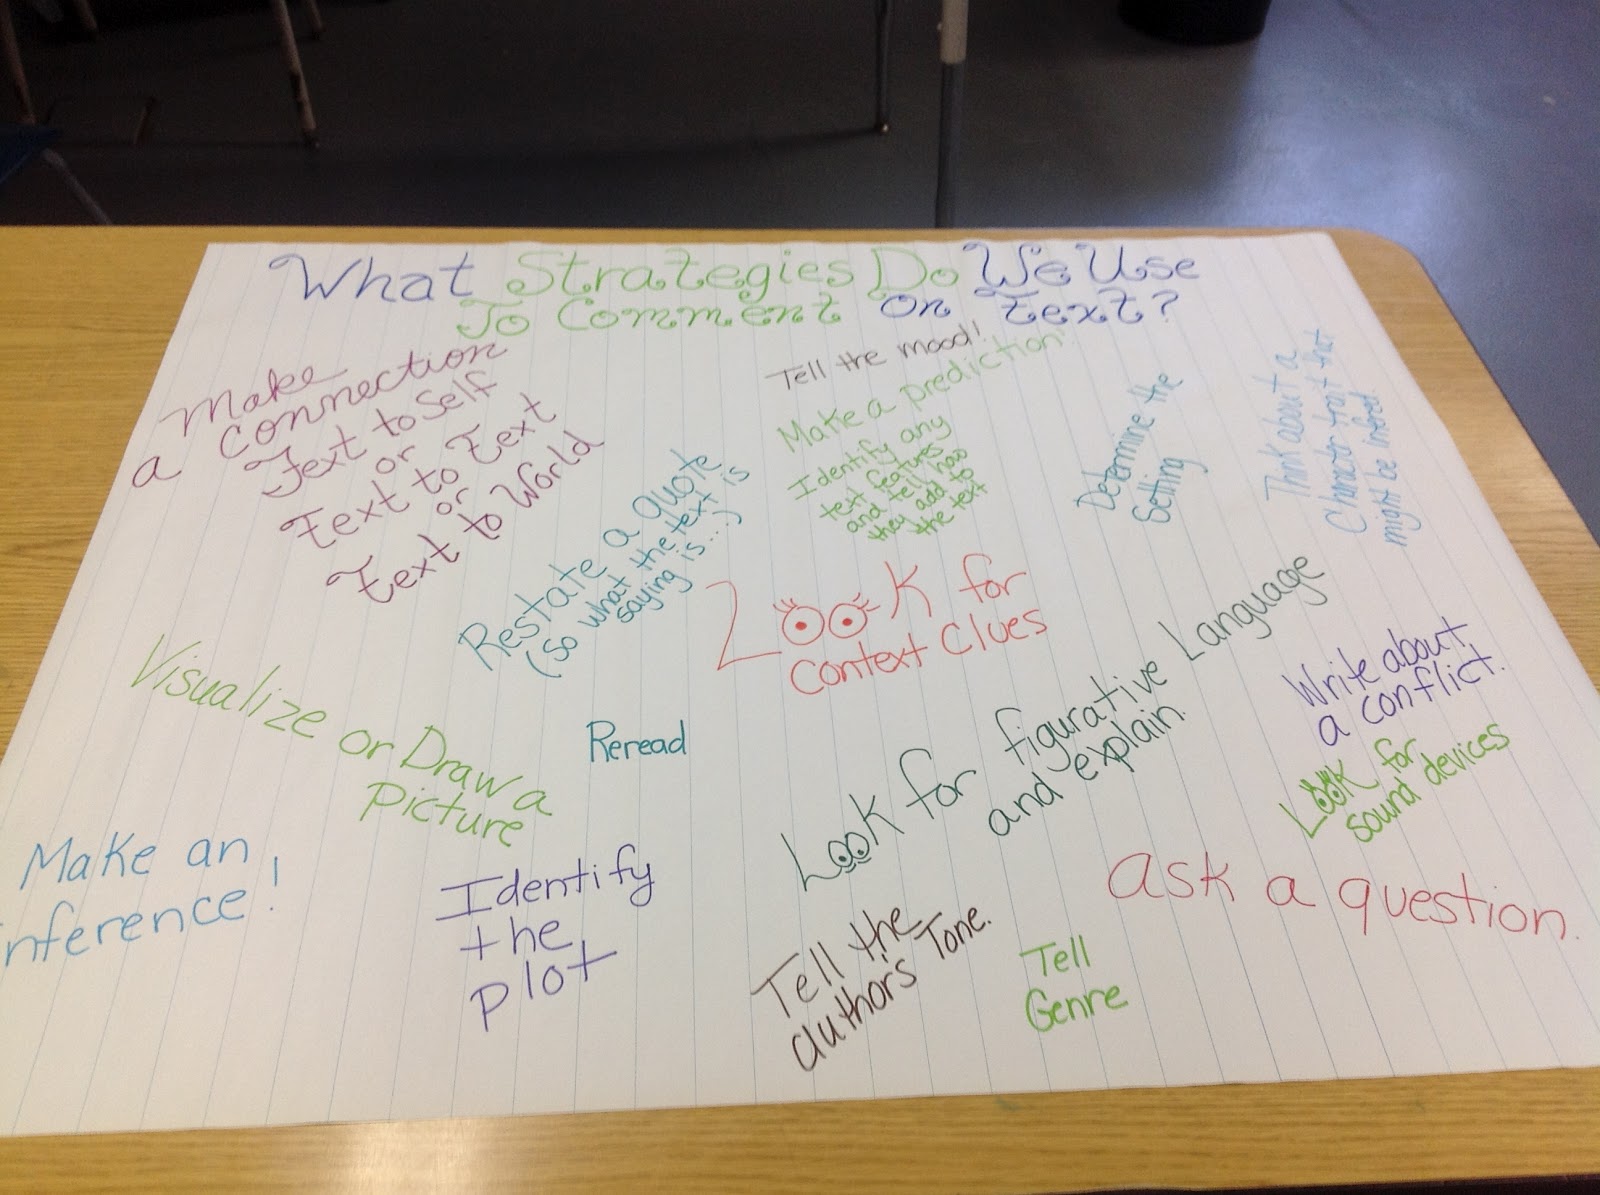 What Strategies Do We Use
To Comment on Text?
Make
a Connection
Text to Self
or
Text to Text
or
Text to World
Tell the mood!
Make a prediction!
Identify any
text features
and tell how
they add to
the text
Determine the
Setting
Think about a
Character trait that
might be infered.
Restate a quote
(So what the text is
saying is...)
Look for
Context Clues
Visualize or Draw a
Picture
Reread
Look for figurative Language
and explain.
Write about
a conflict.
Look for
sound devices
Make an
inference!
Identify
the
plot
Tell the
authors Tone.
Tell
Genre
Ask a question.